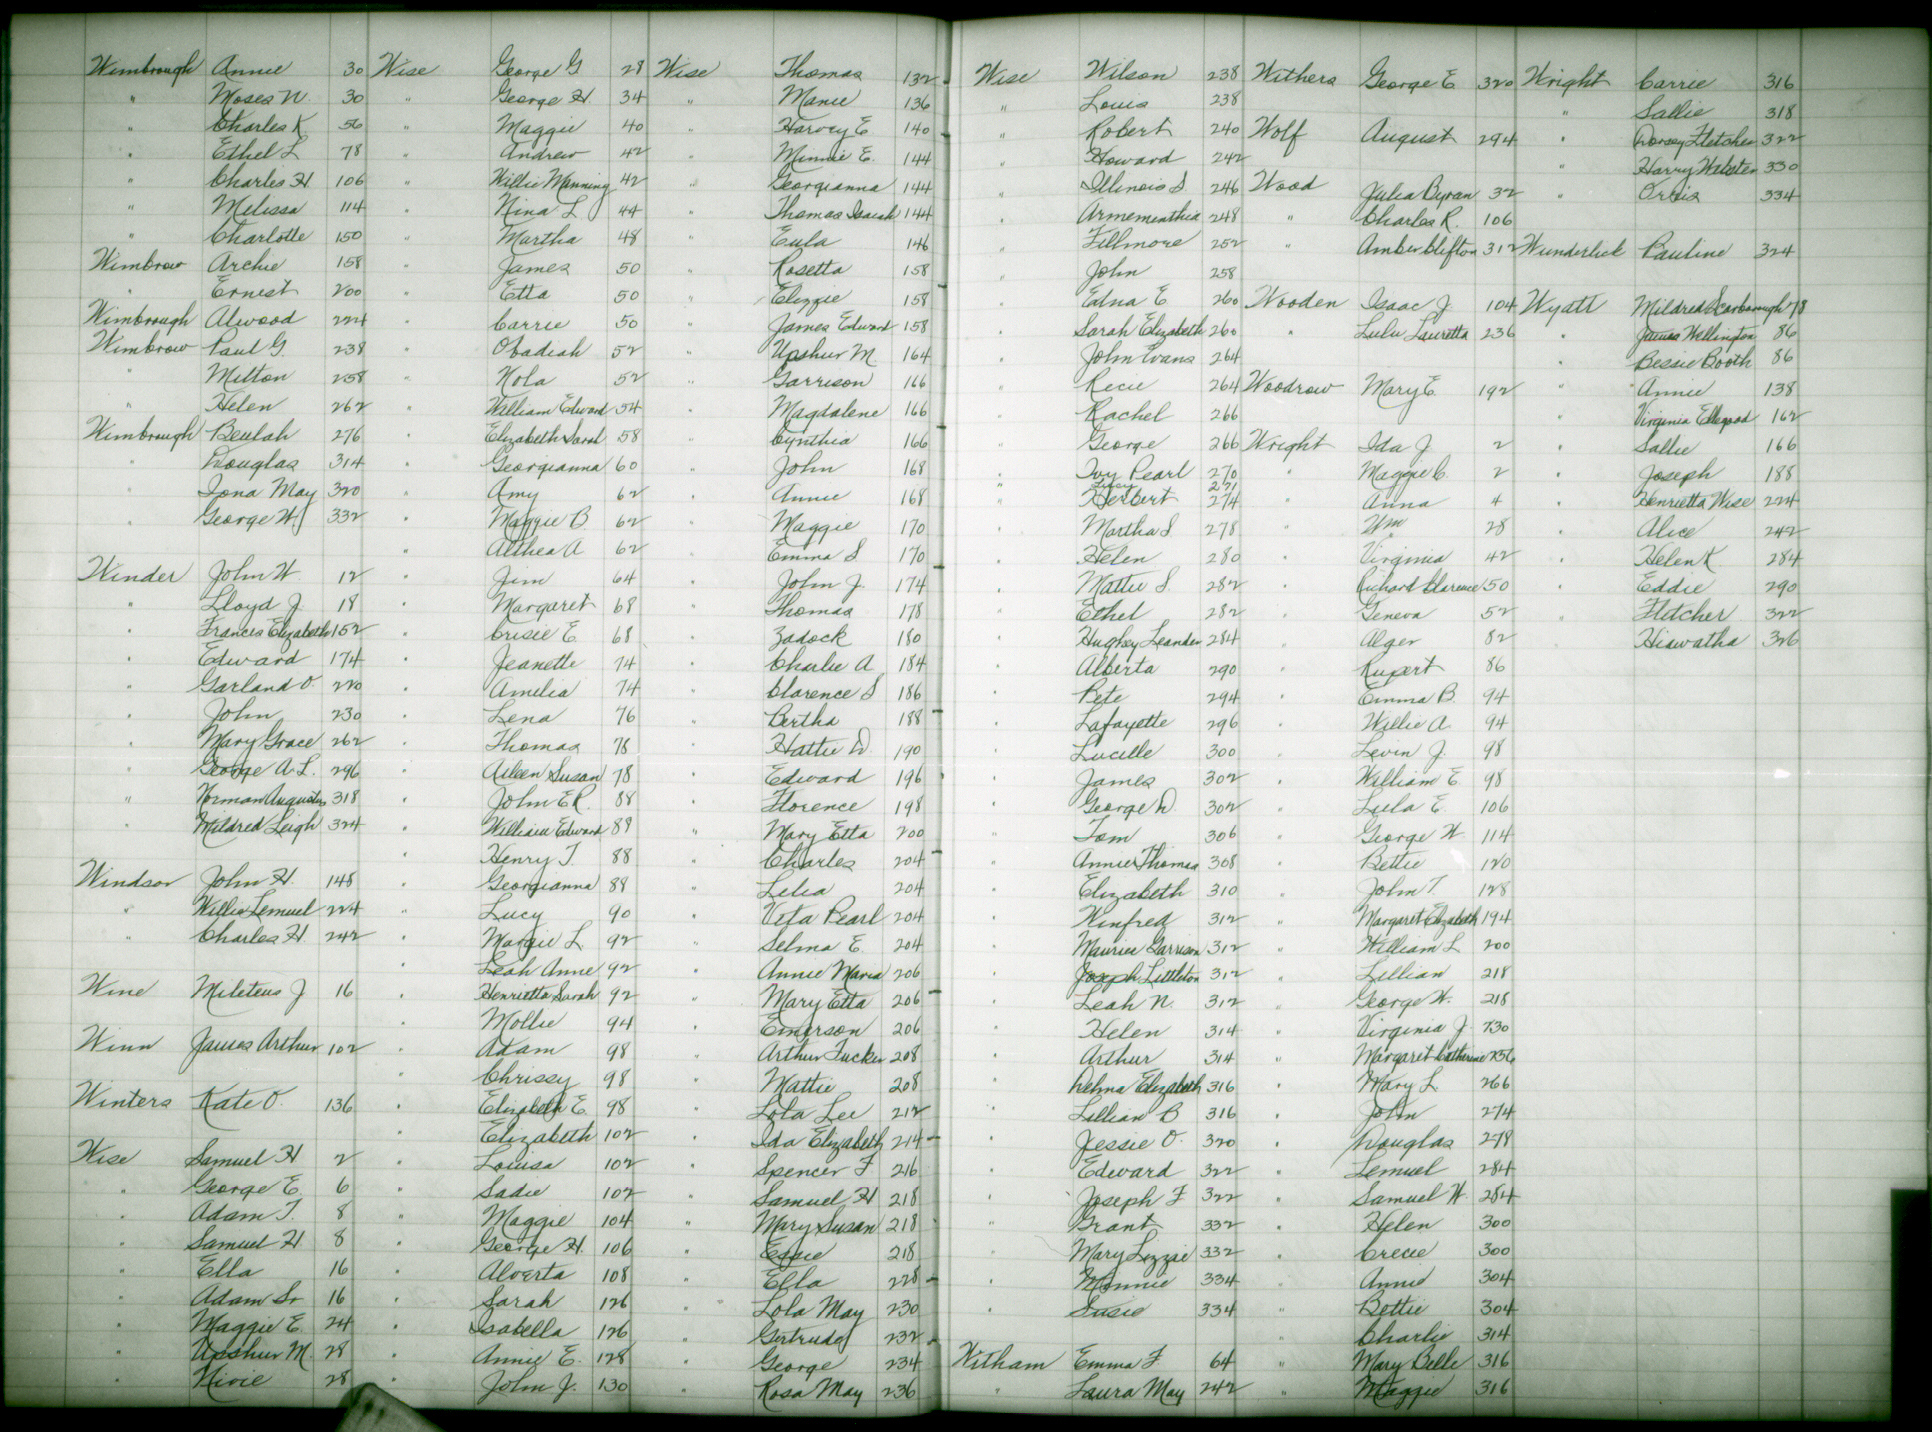 Wimbrough Annie 30
" Moses W. 30
" Charles K 56
" Ethel L 78
" Charles H. 106
" Melissa 114
" Charlotte 150
Wimbrow Archie 158
" Ernest 200
Wimbrough Alwood 224
Wimbrow Paul G. 238
" Milton 258
" Helen 262
Wimbrough Beulah 276
" Douglas 314
" Iona May 320
" George W. 332
Winder John W. 12
" Lloyd J. 18
" Frances Elizabeth 152
" Edward 174
" Garland O. 220
" John 230
" Mary Grace 262
" George A. L. 296
" Norman Augustus 318
" Mildred Leigh 324
Windsor John H. 148
" Willie Lemuel 224
" Charles H 242
Wine Mileteus J 16
Winn James Arthur 102
Winters Kate O. 136
Wise Samuel H 2
" George E. 6
" Adam T. 8
" Samuel H. 8
" Ella 16
" Adam Sr 16
" Maggie E. 24
" Upshur M. 28
" Nivie 28
Wise George G 28
" George H. 34
" Maggie 40
" Andrew 42
" Willie Manning 42
" Nina L 44
" Martha 48
" James 50
" Etta 50
" Carrie 50
" Obadiah 52
" Nola 52
" William Edward 54
" Elizabeth Sarah 58
" Georgianna 60
" Amy 62
" Maggie B. 62
" Althea A 62
" Jim 64
" Margaret 68
" Crisie E. 68
" Jeanette 74
" Amelia 74
" Lena 76
" Thomas 78
" Aileen Susan 78
" John E R. 88
" William Edward 88
" Henry T. 88
" Georgianna 88
" Lucy 90
" Margie L 92
" Leah Anne 92
" Henrietta Sarah 92
" Mollie 94
" Adam 98
" Chrissy 98
" Elizabeth E. 98
" Elizabeth 102
" Louisa 102
" Sadie 102
" Maggie 104
" George H. 106
" Alverta 108
" Sarah 126
" Isabella 126
" Annie E. 128
" John J. 130
Wise Thomas 132
" Manie 136
" Harvey E 140
" Minnie E. 144
" Georgianna 144
" Thomas Isaiah 144
" Eula 146
" Rosetta 158
" Elizzie 158
" James Edward 158
" Upshur M. 164
" Garrison 166
" Magdalene 166
" Cynthia 166
" John 168
" Annie 168
" Maggie 170
" Emma S 170
" John J. 174
" Thomas 178
" Zadock 180
" Charlie A 184
" Clarence S 186
" Bertha 188
" Hattie D. 190
" Edward 196
" Florence 198
" Mary Etta 200
" Charles 204
" Lelia 204
" Veta Pearl 204
" Selma E. 204
" Annie Maria 206
" Mary Etta 206
" Emerson 206
" Arthur Tucker 208
" Mattie 208
" Lola Lee 212
" Ida Elizabeth 214
" Spencer F 216
" Samuel H 218
" Mary Susan 218
" Essie 218
" Ella 228
" Lola May 230
" Gertrude 232
" George 234
" Rosa May 236
Wise Wilson 238
" Louis 238
" Robert 240
" Howard 242
" Illinois S 246
" Armementhia 248
" Fillmore 252
" John 258
" Edna E 260
" Sarah Elizabeth 260
" John Evans 264
" Recie 264
" Rachel 266
" George 266
" Ivy Pearl 270
" 271
" Herbert 274
" Martha S 278
" Helen 280
" Mattie S. 282
" Ethel 282
" Hughey Leander 284
" Alberta 290
" Pete 294
" Lafayette 296
" Lucille 300
" James 302
" George D. 302
" Tom 306
" Annie Thomas 308
" Elizabeth 310
" Winfred 312
" Maurice Garrison 312
" Joseph Littleton 312
" Leah N. 312
" Helen 314
" Arthur 314
" Delma Elizabeth 316
" Lillian B 316
" Jessie O. 320
" Edward 322
" Joseph F 322
" Grant 332
" Mary Lizzie 332
" Minnie 334
" Susie 334
Witham Emma F. 64
" Laura May 242
Withers George E. 320
Wolf August 294
Wood Julia Byran 32
" Charles R. 106
" Amber Clifton 312
Wooden Isaac J. 104
" Lulu Lauretta 236
Woodrow Mary E. 192
Wright Ida J. 2
" Maggie C. 2
" Anna 4
" Wm 28
" Virginia 42
" Richard Clarence 50
" Geneva 52
" Alger 82
" Rupert 86
" Emma B. 94
" Willie A. 94
" Levin J. 98
" William E 98
" Lula E. 106
" George W. 114
" Bettie 120
" John T. 128
" Margaret Elizabeth 194
" William L 200
" Lillian 218
" George W. 218
" Virginia J. 230
" Margaret Catherine 256
" Mary L 266
" John 274
" Douglas 278
" Lemuel 284
" Samuel W. 284
" Helen 300
" Crecie 300
" Annie 304
" Bettie 304
" Charlie 314
" Mary Belle 316
" Maggie 316
Wright Carrie 316
" Sallie 318
" Dorsey Fletcher 322
" Harry Webster 330
" Orbis 334
Wunderlick Pauline 324
Wyatt Mildred Scarborough 78
" James Wellington 86
" Bessie Booth 86
" Annie 138
" Virginia Ellegood 162
" Sallie 166
" Joseph 188
" Henrietta Wise 224
" Alice 242
" Helen K. 284
" Eddie 290
" Fletcher 322
" Hiawatha 326